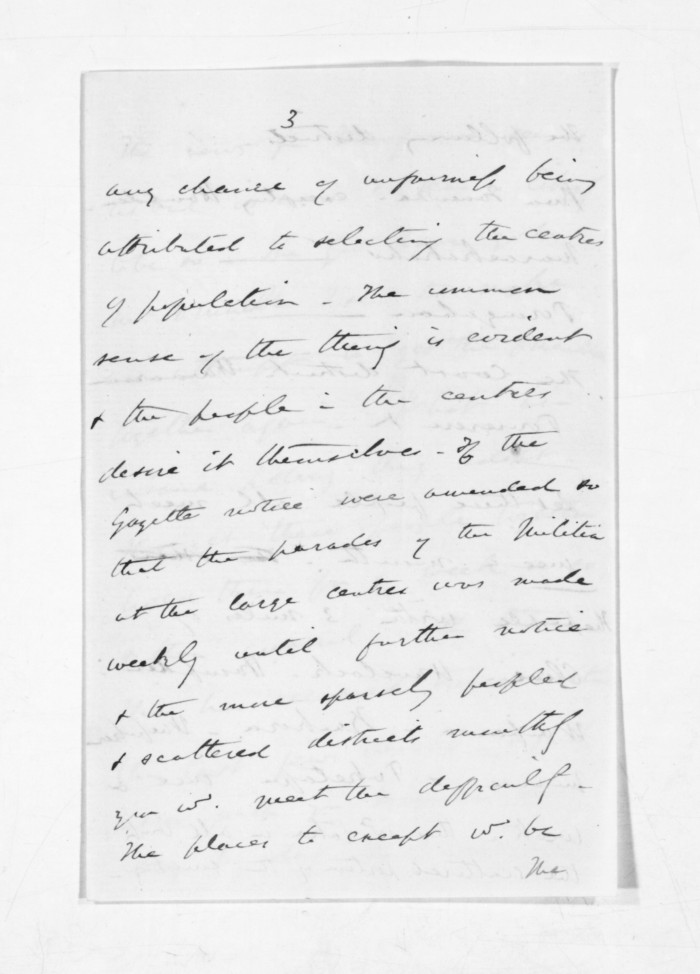 3
any chance of unfairness being
attributed to selecting the centres
of population - The common
sense of the thing is evident
& the people in the centres
desire it themselves - If the
Gazette notice were amended so
that the parades of the Militia
at the large centres was made
weekly until further notice
& the more sparsely peopled
& scattered districts monthly
you wd. meet the difficulty -
The places to except wd. be
The